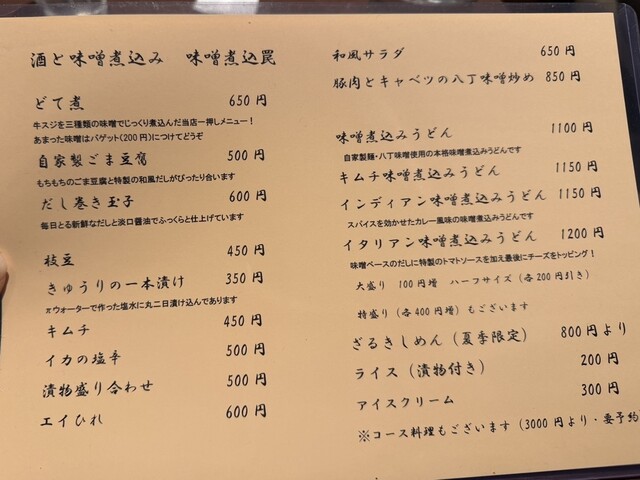 酒と味噌煮込み 味噌煮込罠
どて煮 650円
牛スジを三種類の味噌でじっくり煮込んだ当店一押しメニュー！
あまった味噌はバゲット(200円)につけてどうぞ
自家製ごま豆腐 500円
もちもちのごま豆腐と特製の和風だしがぴったり合います
だし巻き玉子 600円
毎日とる新鮮なだしと淡口醤油でふっくらと仕上げています
枝豆 450円
きゅうりの一本漬け 350円
πウォーターで作った塩水に丸二日漬け込んであります
キムチ 450円
イカの塩辛 500円
漬物盛り合わせ 500円
エイひれ 600円
和風サラダ 650円
豚肉とキャベツの八丁味噌炒め 850円
味噌煮込みうどん 1100円
自家製麺・八丁味噌使用の本格味噌煮込みうどんです
キムチ味噌煮込みうどん 1150円
インディアン味噌煮込みうどん 1150円
スパイスを効かせたカレー風味の味噌煮込みうどんです
イタリアン味噌煮込みうどん 1200円
味噌ベースのだしに特製のトマトソースを加え最後にチーズをトッピング！
大盛り 100円増 ハーフサイズ（各200円引き）
特盛り（各400円増）もございます
ざるきしめん（夏季限定） 800円より
ライス（漬物付き） 200円
アイスクリーム 300円
※コース料理もございます（3000円より・要予約